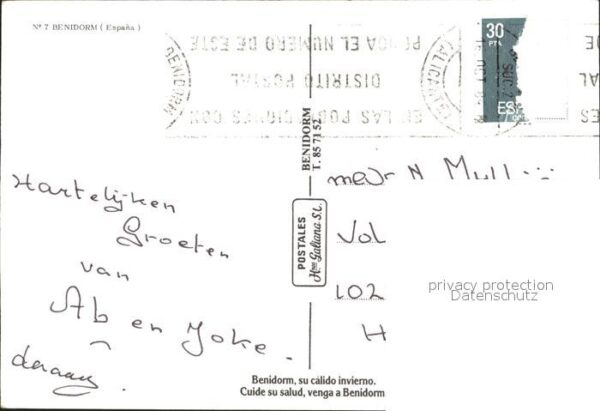 Nº 7 BENIDORM ( España )
PONGA EL NUMERO DE ESTE
DISTRITO POSTAL
EN LAS POBLACIONES CON
BENIDORM
(ALICANTE)
30
PTA
ES
BENIDORM
T. 85 71 52
POSTALES
Hnos Galiana S.L.
Hartelijken
Groeten
van
Ab en Joke.
mevr N Mull
Vol
102
H
privacy protection
Datenschutz
Benidorm, su cálido invierno.
Cuide su salud, venga a Benidorm